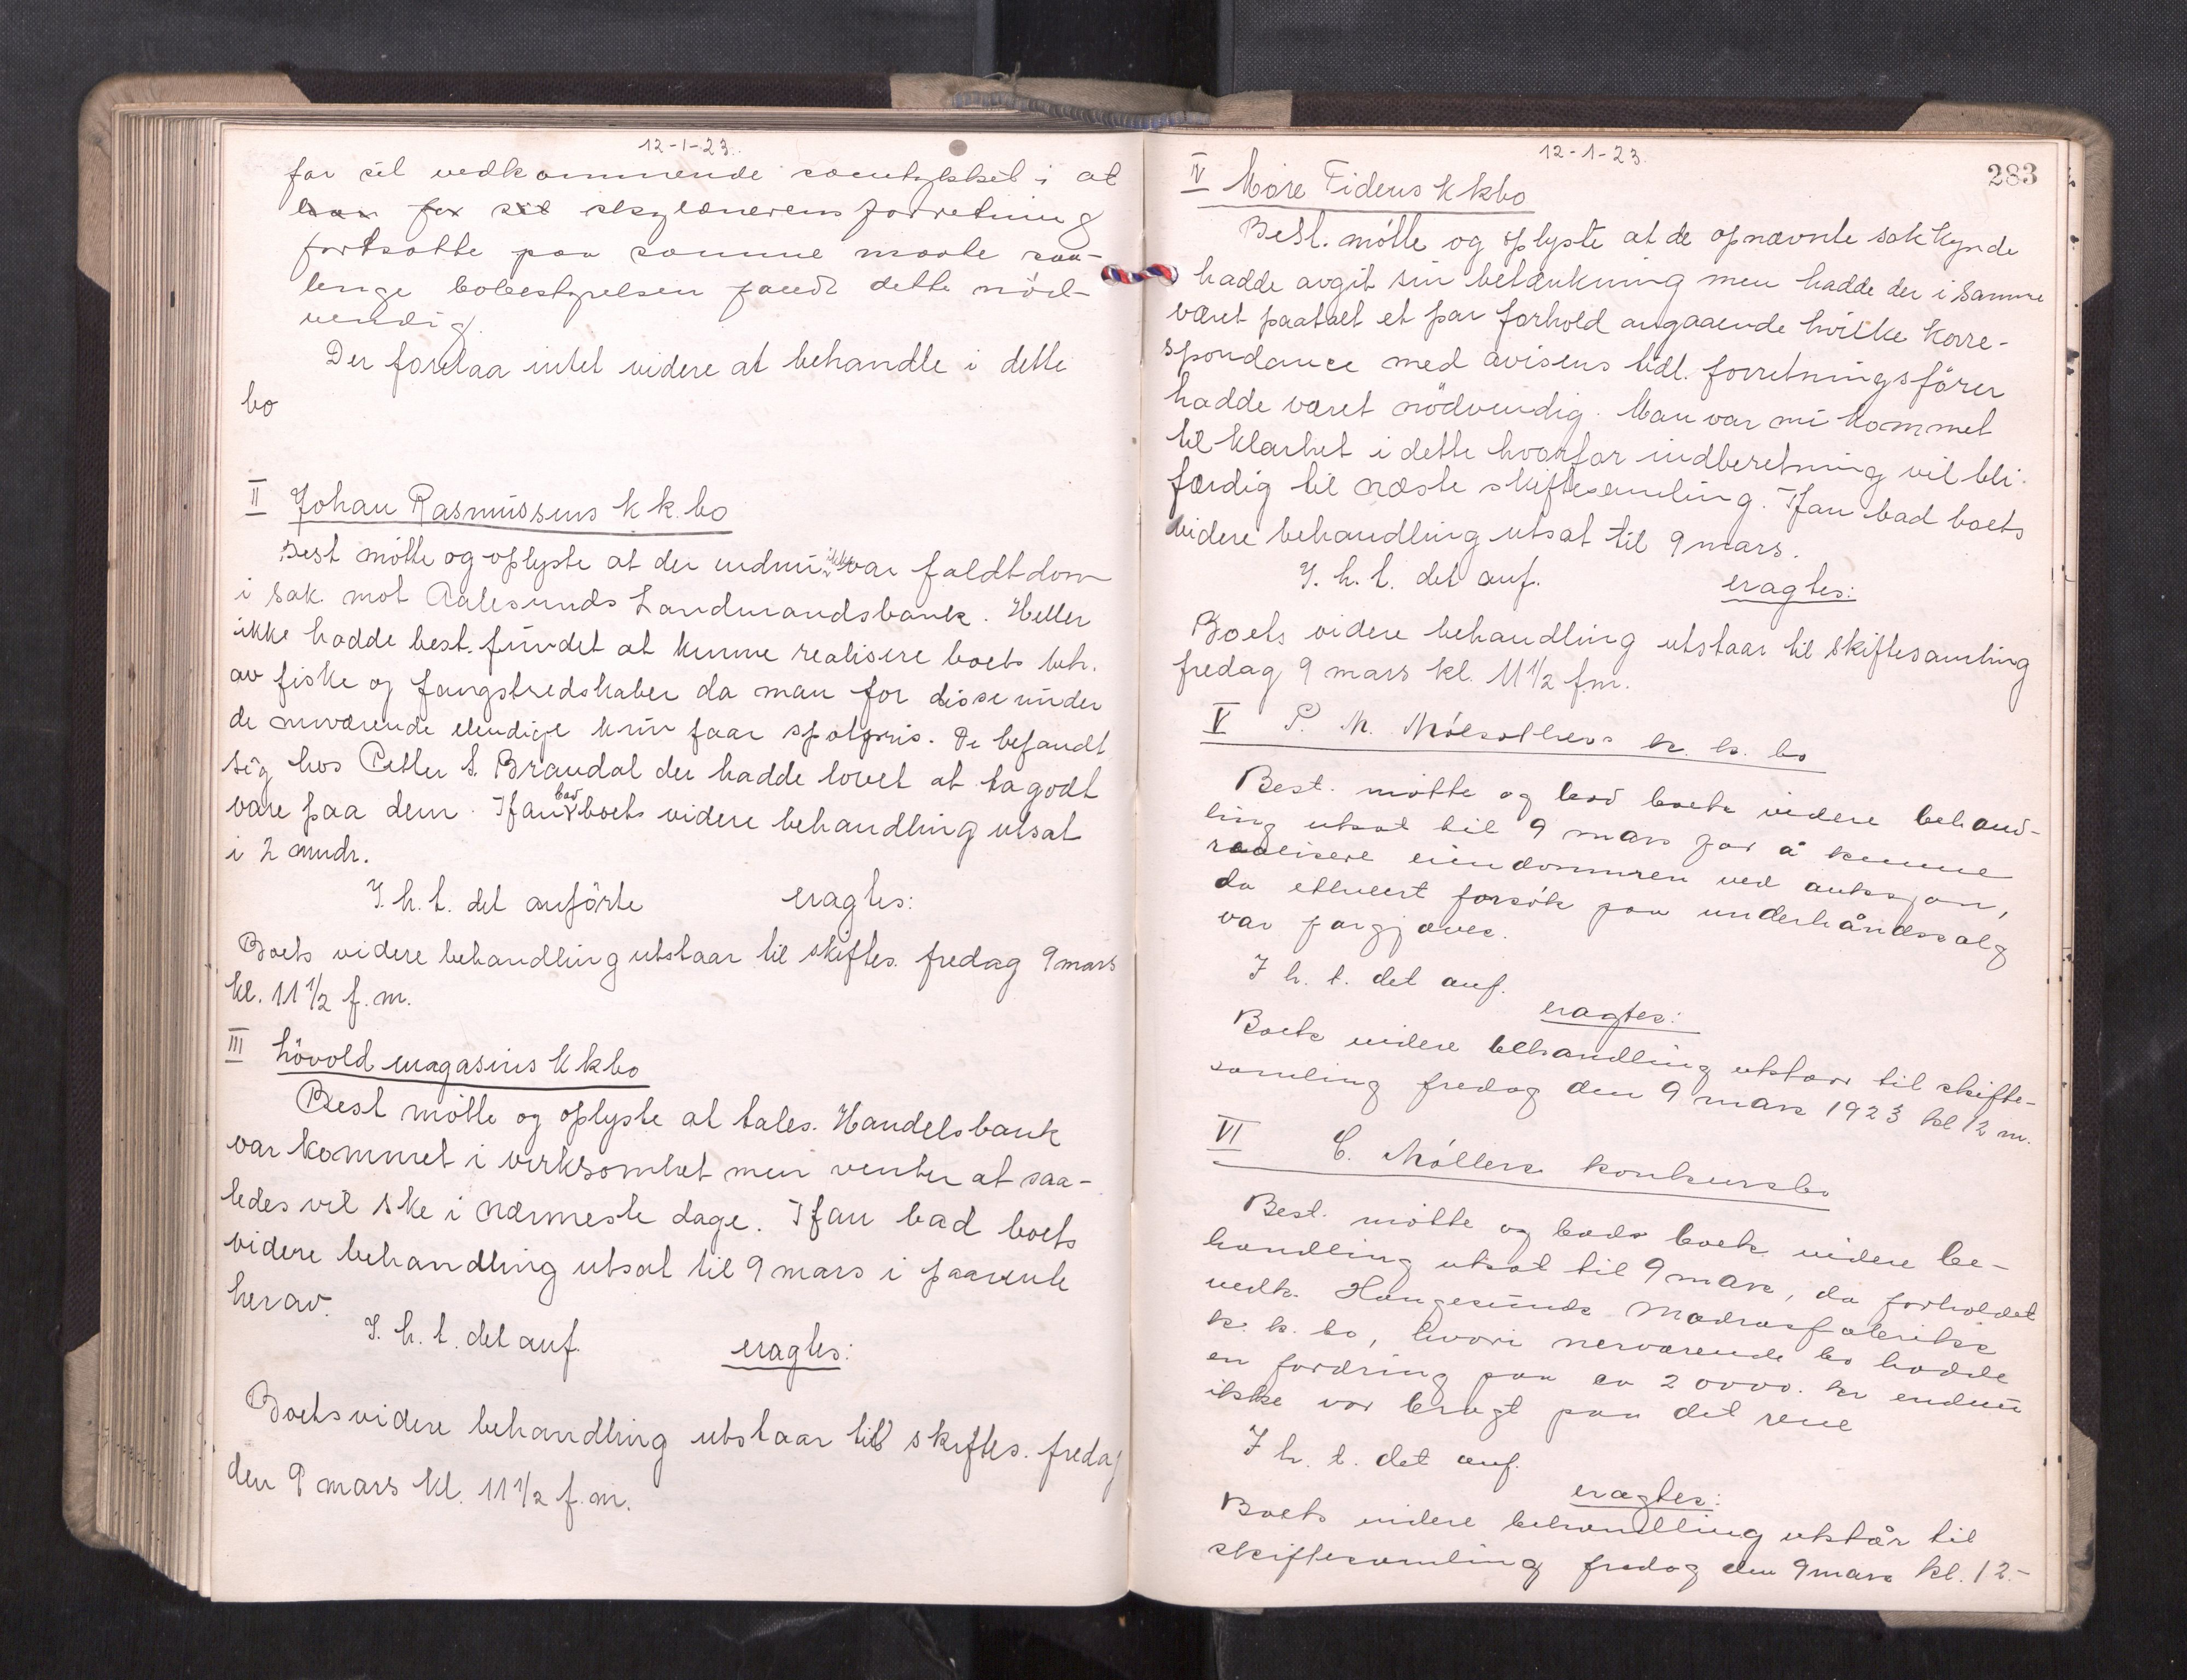 12-1-23.
for sit vedkommende samtykket i at
han for sit skyldnerens forretning
fortsatte paa samme maate saa-
lenge bobestyrelsen fandt dette nød-
vendig.
Der forelaa intet videre at behandle i dette
bo
II Johan Rasmussens k k. bo
Best møtte og oplyste at der endnu ikke var faldt dom
i sak mot Aalesunds Landmandsbank. Heller
ikke hadde best. fundet at kunne realisere boets beh.
av fiske og fangstredskaber da man for disse under
de nuværende elendige kun faar spotpris. De befandt
sig hos Petter S. Brandal der hadde lovet at ta godt
vare paa dem. Ifan bad boets videre behandling utsat
i 2 mndr.
I. h. t. det anførte eragtes:
Boets videre behandling utstaar til skiftes. fredag 9 mars
kl. 11 1/2 f. m.
III Løvold magasins k k bo
Best møtte og oplyste at Aales. Handelsbank
var kommet i virksomhet men venter at saa-
ledes vil ske i nærmeste dage. Ifan bad boets
videre behandling utsat til 9 mars i paavente
herav.
I. h. t. det anf. eragtes:
Boets videre behandling utstaar til skiftes. fredag
den 9 mars kl. 11 1/2 f. m.
12-1-23
283
IV Møre Tidens k k bo
Best. møtte og oplyste at de opnævnte sakkynde
hadde avgit sin betænkning men hadde der i samme
været paatalt et par forhold angaaende hvilke korre-
spondance med avisens tidl. forretningsfører
hadde været nødvendig. Man var nu kommet
til klarhet i dette hvorfor indberetning vil bli
færdig til næste skiftesamling. Ifan bad boets
videre behandling utsat til 9 mars.
I. h. t. det anf. eragtes:
Boets videre behandling utstaar til skiftesamling
fredag 9 mars kl. 11 1/2 f.m.
V P. M. Molsæthers k. k. bo
Best. møtte og bad boets videre behand-
ling utsat til 9 mars for å kunne
realisere eiendommen ved auksjon,
da ethvert forsøk paa underhåndssalg
var forgjæves.
I h. t. det anf.
eragtes:
Boets videre behandling utstaar til skifte-
samling fredag den 9 mars 1923 kl 12 m.
VI C. Møllers konkursbo
Best. møtte og bad boets videre be-
handling utsat til 9 mars, da forholdet
vedk. Haugesunds Madrasfabriks
k. k. bo, hvori nærværende bo hadde
en fordring paa ca 20000. kr endnu
ikke var bragt paa det rene
I h. t. det anf.
eragtes:
Boets videre behandling utstår til
skiftesamling fredag den 9 mars kl. 12.-